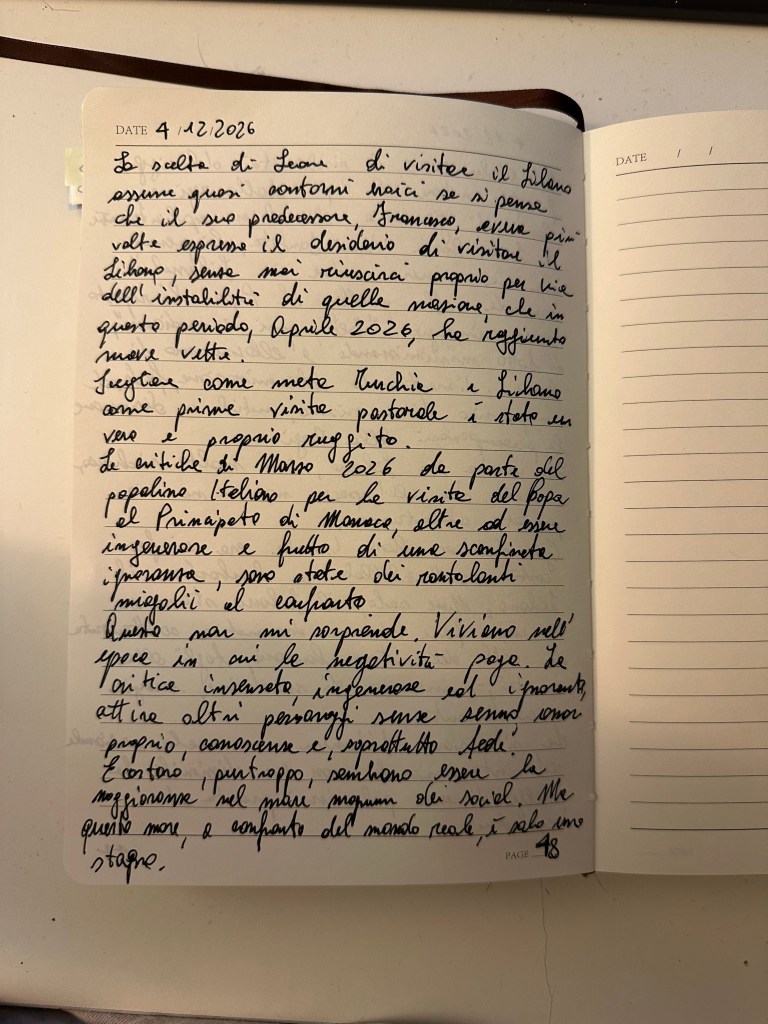 DATE 4/12/2026
La scelta di Leone di visitare il Libano
assume quasi contorni eroici se si pensa
che il suo predecessore, Francesco, aveva più
volte espresso il desiderio di visitare il
Libano, senza mai riuscirci proprio per via
dell'instabilità di quella nazione, che in
questo periodo, Aprile 2026, ha raggiunto
nuove vette.
Scegliere come meta Turchia e Libano
come prima visita pastorale è stato un
vero e proprio ruggito.
Le critiche di Marzo 2026 da parte del
popolino Italiano per la visita del Papa
al Principato di Monaco, oltre ad essere
ingenerose e frutto di una sconfinata
ignoranza, sono state dei
miagolii al confronto
Questo non mi sorprende. Viviamo nell'
epoca in cui la negatività paga. La
critica insensata, ingenerosa ed ignorante,
attira altri personaggi senza senno, amor
proprio, conoscenza e, soprattutto fede.
E costoro, purtroppo, sembrano essere la
maggioranza nel mare magnum dei social. Ma
questo mare, a confronto del mondo reale, è solo uno
stagno.
PAGE 48
DATE / /